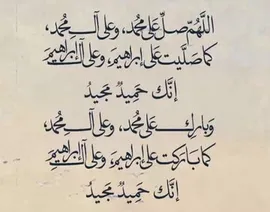 اللهم صل على محمد، وعلى آل محمد،
كما صليت على إبراهيم، وعلى آل إبراهيم
إنك حميد مجيد
وبارك على محمد، وعلى آل محمد،
كما باركت على إبراهيم، وعلى آل إبراهيم
إنك حميد مجيد